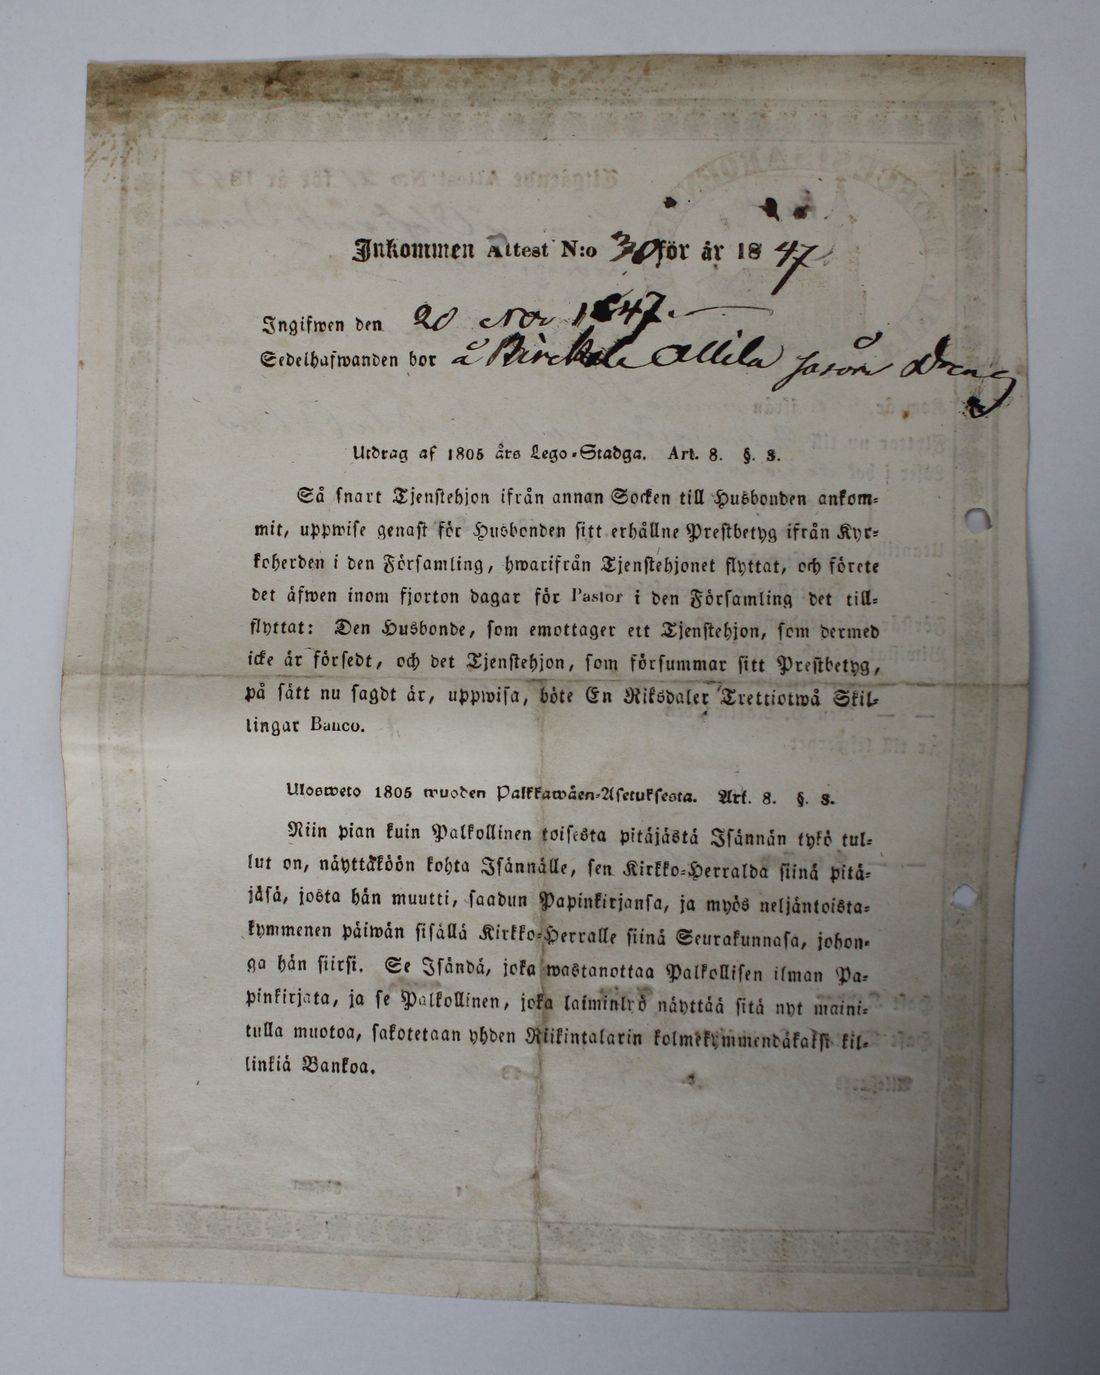 Inkommen Attest N:o 30 för år 1847
Ingifwen den 20 Nov 1847.
Sedelhafwanden bor å Attila såsom Dreng
Utdrag af 1805 års Lego-Stadga. Art. 8. §. 3.
Så snart Tjenstehjon ifrån annan Socken till Husbonden ankom-
mit, uppwise genast för Husbonden sitt erhållne Prestbetyg ifrån Kyr-
koherden i den Församling, hwarifrån Tjenstehjonet flyttat, och förete
det äfwen inom fjorton dagar för Pastor i den Församling det till-
flyttat: Den Husbonde, som emottager ett Tjenstehjon, som dermed
icke är försedt, och det Tjenstehjon, som försummar sitt Prestbetyg,
på sätt nu sagdt är, uppwisa, böte En Riksdaler Trettiotwå Skil-
lingar Banco.
Ulosweto 1805 wuoden Palkkawäen-Asetuksesta. Art. 8. §. 3.
Niin pian kuin Palkollinen toisesta pitäjästä Isännän tykö tul-
lut on, näyttäköön kohta Isännälle, sen Kirkko-Herralda siinä pitä-
jäsä, josta hän muutti, saadun Papinkirjansa, ja myös neljäntoista-
kymmenen päiwän sisällä Kirkko-Herralle siinä Seurakunnasa, johon-
ga hän siirsi. Se Isändä, joka wastanottaa Palkollisen ilman Pa-
pinkirjata, ja se Palkollinen, joka laiminlyö näyttää sitä nyt maini-
tulla muotoa, sakotetaan yhden Riikintalarin kolmekymmendäkaksi kil-
linkiä Bankoa.